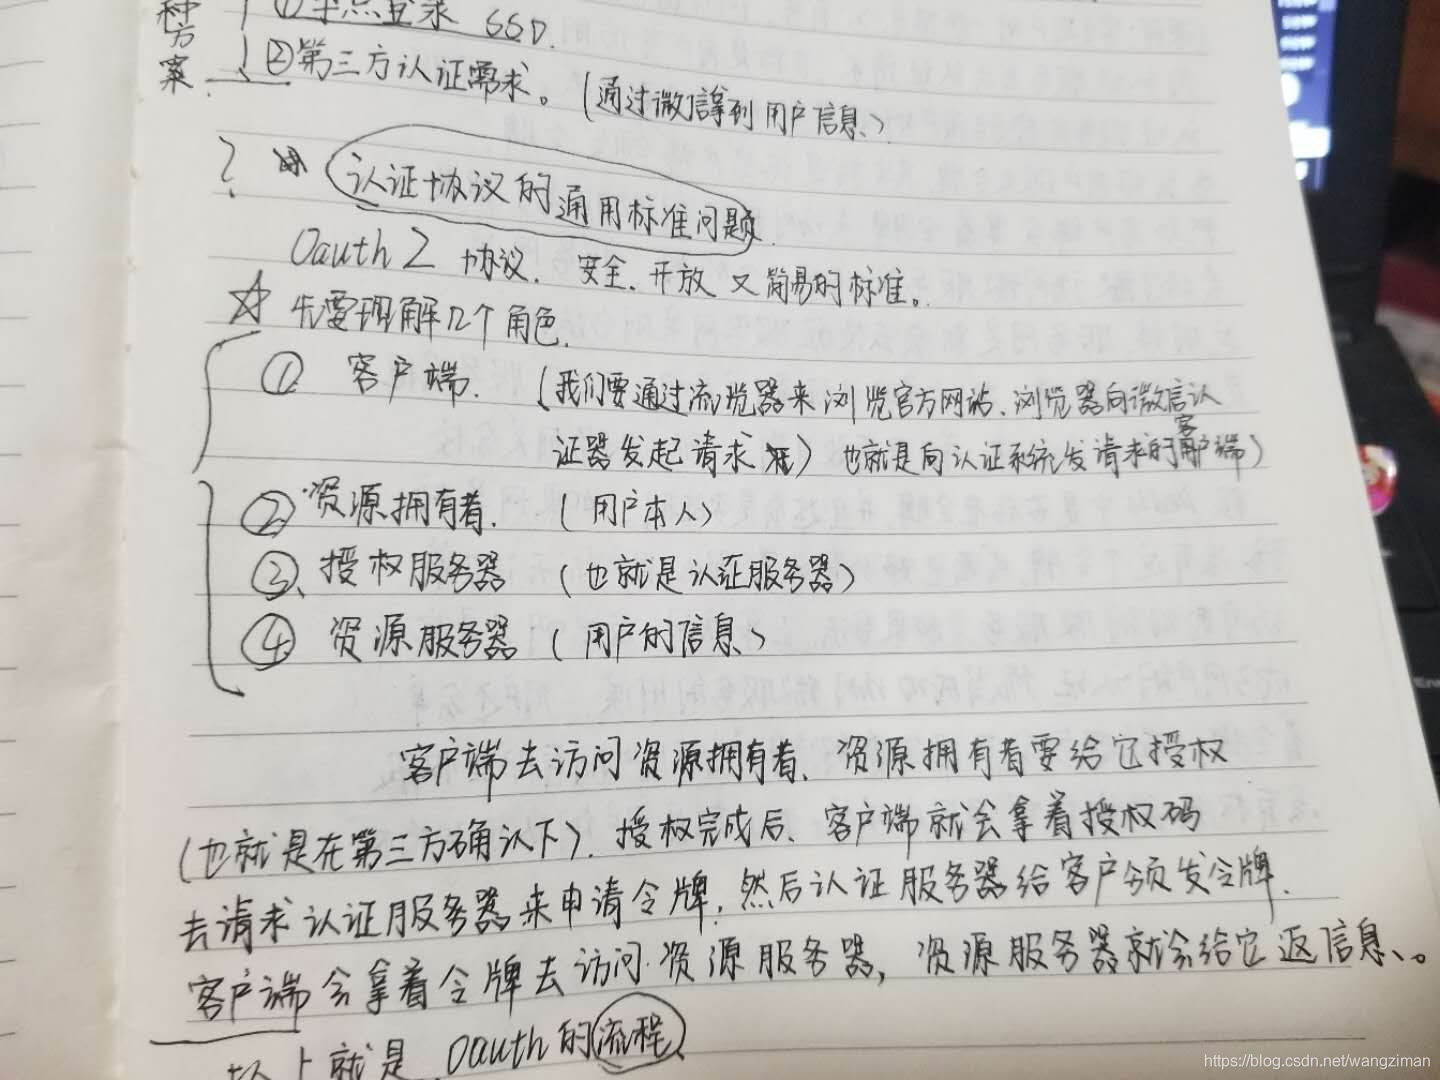 种方案
①单点登录 SSO.
②第三方认证需求。(通过微信拿到用户信息、)
? 认证协议的通用标准问题.
Oauth2 协议. 安全.开放又简易的标准。
☆ 先要理解几个角色.
① 客户端. (我们要通过流览器来浏览官方网站、浏览器向微信认
证器发起请求) 也就是向认证系统发请求的客户端)
② 资源拥有者. (用户本人)
③、授权服务器 (也就是认证服务器)
④ 资源服务器 (用户的信息、)
客户端去访问资源拥有者、资源拥有者要给它授权
(也就是在第三方确认下).授权完成后、客户端就会拿着授权码
去请求认证服务器来申请令牌.然后认证服务器给客户颁发令牌.
客户端会拿着令牌去访问资源服务器,资源服务器就会给它返信息、。
以上就是 Oauth的流程
https://blog.csdn.net/wangziman